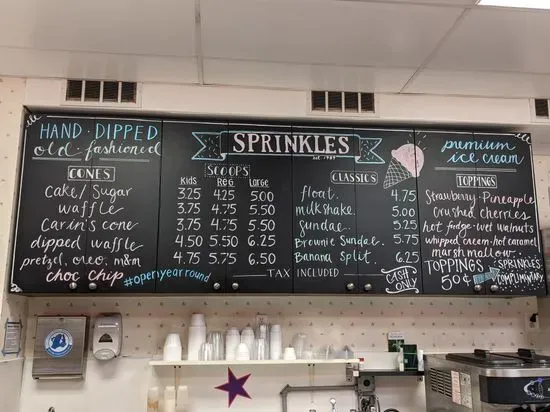 HAND · DIPPED
old · fashioned
CONES
cake/sugar
waffle
Carin's cone
dipped waffle
pretzel, oreo, m&m
choc chip
#openyearround
SPRINKLES
est. 1987
SCOOPS
Kids Reg Large
3.25 4.25 5.00
3.75 4.75 5.50
3.75 4.75 5.50
4.50 5.50 6.25
4.75 5.75 6.50
CLASSICS
float 4.75
milkshake 5.00
Sundae 5.25
Brownie Sundae 5.75
Banana Split 6.25
TAX INCLUDED
CASH ONLY
premium
ice cream
TOPPINGS
Strawberry · Pineapple
crushed cherries
hot fudge · wet walnuts
whipped cream · hot caramel
marshmallow
TOPPINGS 50¢
SPRINKLES
COMPLIMENTARY